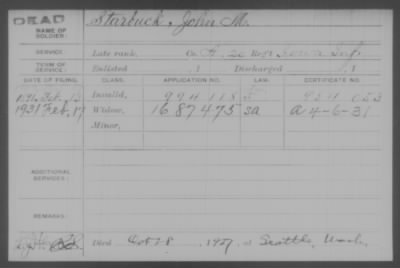 DEAD
NAME OF SOLDIER: Starbuck, John M.
SERVICE: Late rank, Co. H, 20 Reg't Iowa Inf.
TERM OF SERVICE: Enlisted , 1 Discharged , 1
DATE OF FILING. CLASS. APPLICATION NO. LAW. CERTIFICATE NO.
Invalid, 994118
1931 Feb. 17 Widow, 1687475 SA A 4-6-31
Minor,
ADDITIONAL SERVICES:
REMARKS:
Died Oct 28 1927, at Seattle, Wash.